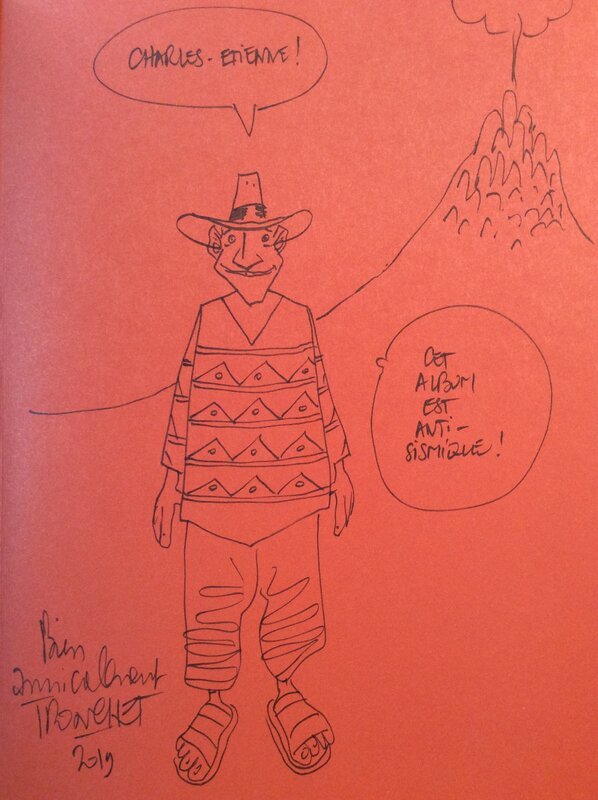 CHARLES-ETIENNE!
CET
ALBUM
EST
ANTI-
SISMIQUE!
Bien
amicalement
TRONCHET
2019